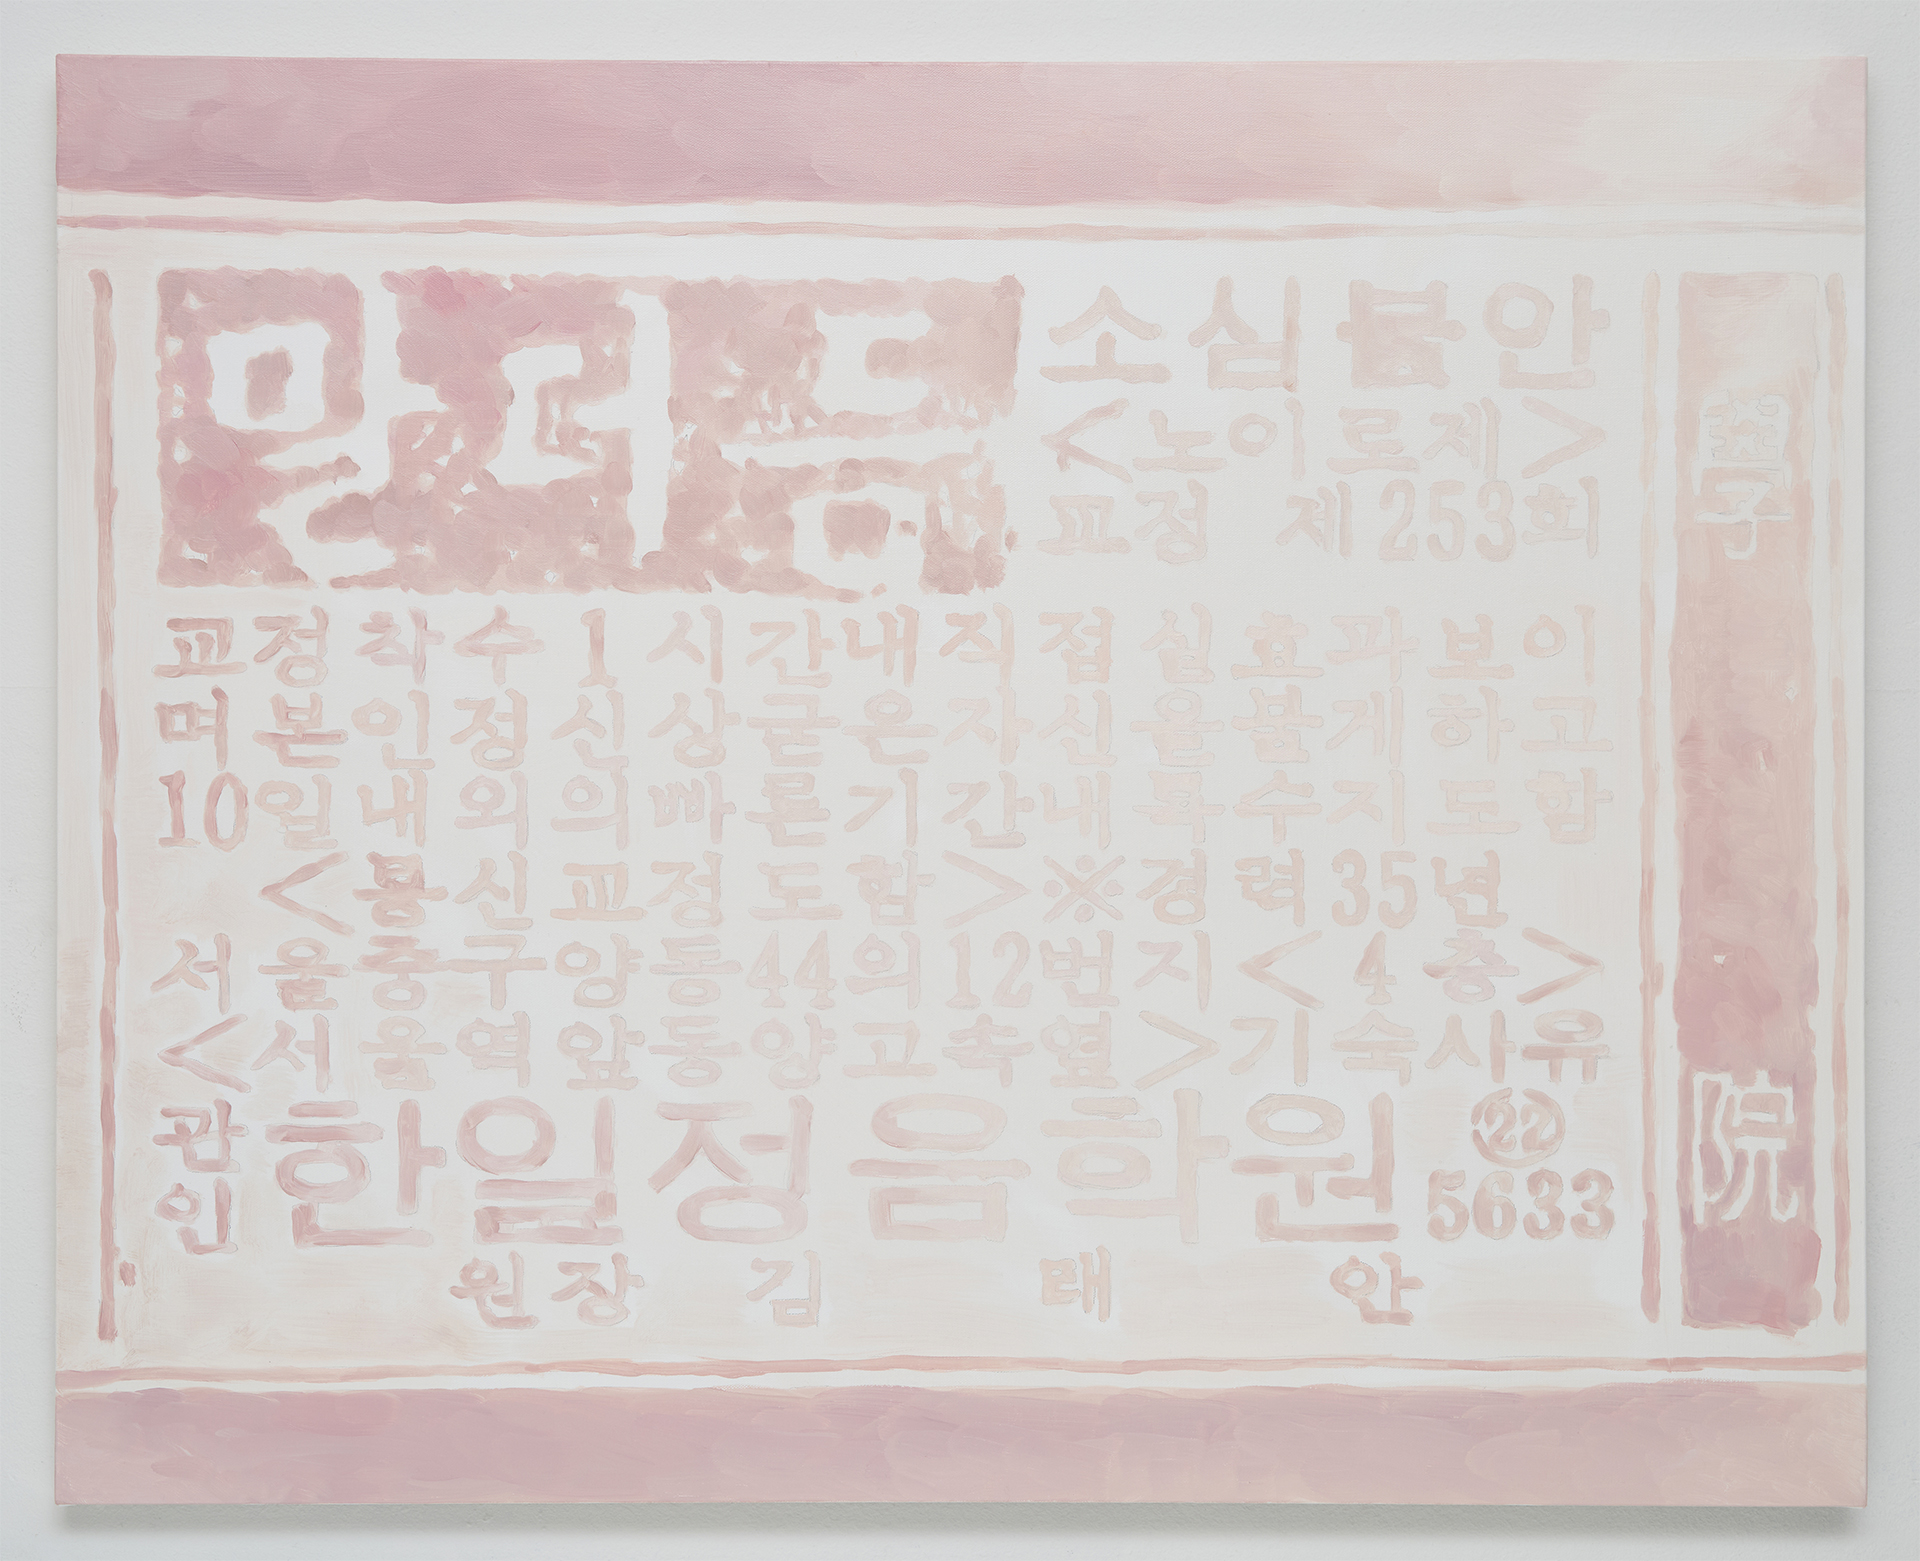 말더듬
소심불안
<노이로제>
교정 제253회
교정착수1시간내직접실효과보이
며본인정신상굳은자신을품게하고
10일내외의빠른기간내특수지도함
<통신교정도함>※경력35년
서울중구양동44의12번지<4층>
<서울역앞동양고속옆>기숙사유
관인 한일정음학원 ㉒5633
원장 김태안
學院